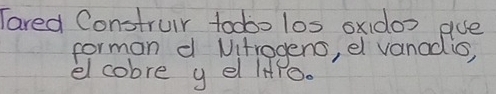 Tared Construir todos los oxidos que
forman el Nitrogeno, el vanadio,
el cobre y el